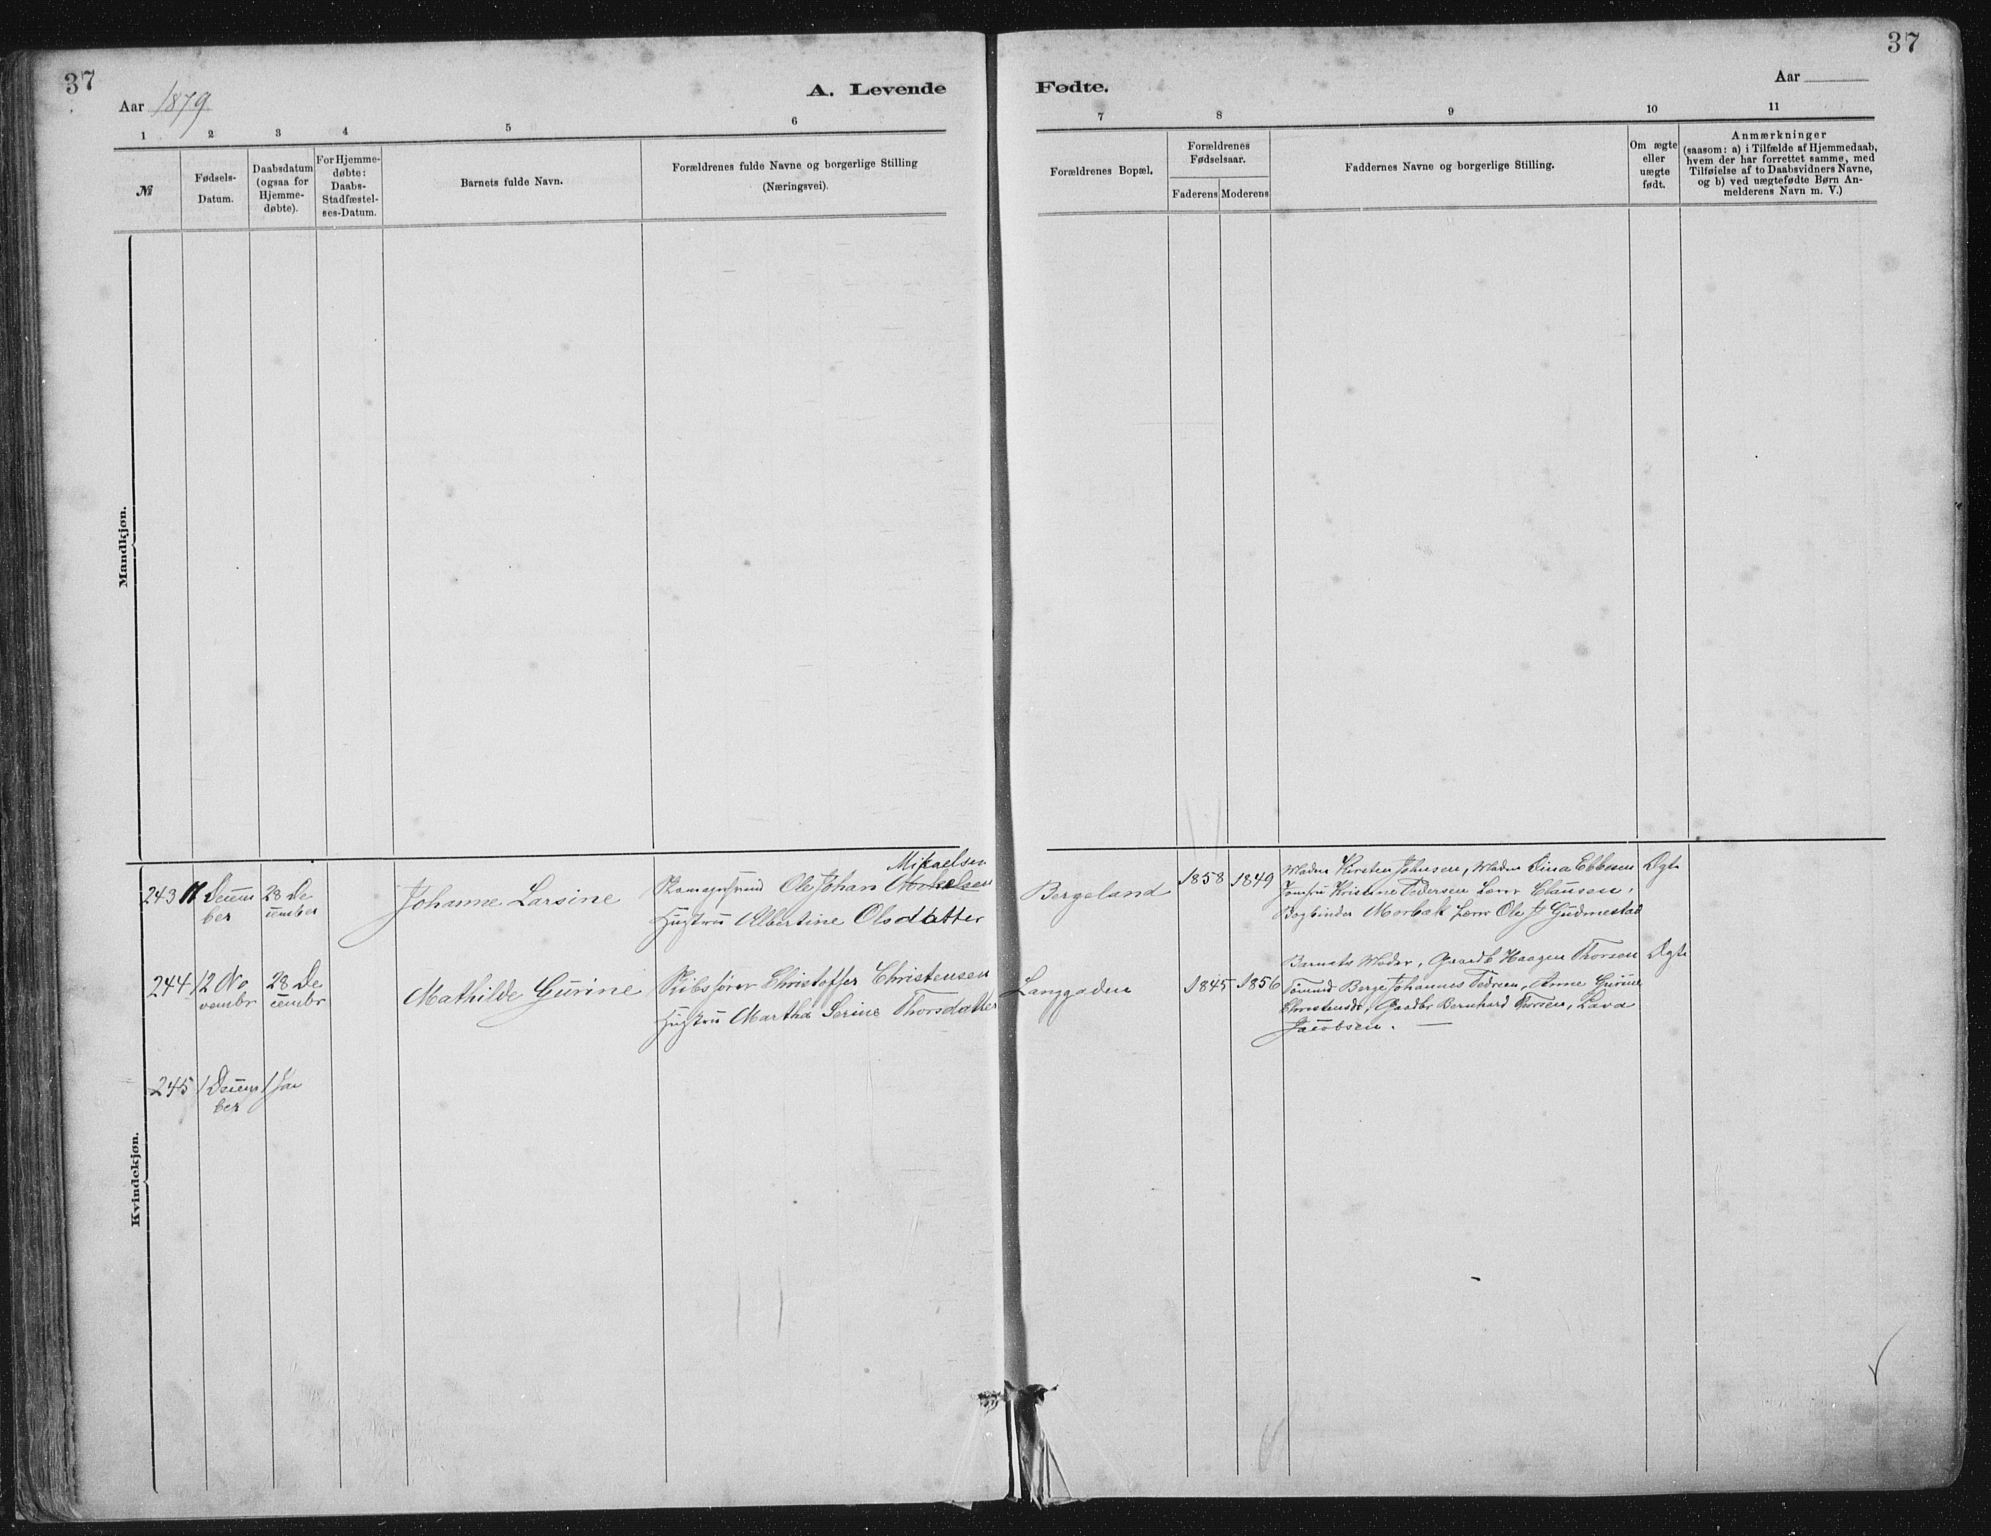 37
Aar 1879
A. Levende
1 2 3 4 5 6
№
Fødsels-
Datum.
Daabsdatum
(ogsaa for
Hjemme-
døbte).
For Hjemme-
døbte:
Daabs-
Stadfæstel-
ses-Datum.
Barnets fulde Navn.
Forældrenes fulde Navne og borgerlige Stilling
(Næringsvei).
Mandkjøn.
Mikaelsen
243 11 Decem 28 De Johanne Larsine Ole Johan
ber cember Hustru Albertine Olsdatter
244 12 No 28 De Mathilde Gurine Skibsfører Christoffer Christensen
vembr cembr Hustru Martha Serine Thorsdatter
245 1 Decem 1 Jan
ber
Kvindekjøn.
37
Aar
Fødte.
7 8 9 10 11
Forældrenes Bopæl.
Forældrenes
Fødselsaar.
Faderens Moderens
Faddernes Navne og borgerlige Stilling.
Om ægte
eller
uægte
født.
Anmærkninger
(saasom: a) i Tilfælde af Hjemmedaab,
hvem der har forrettet samme, med
Tilføielse af to Daabsvidners Navne,
og b) ved uægtefødte Børn An-
melderens Navn m. V.)
Bergeland 1858 1849 Madm Kirsten Johnsen, Madm Dina Ebbesen Ægte
Jomfru Kristine Pedersen Lærer Clausen,
Bogbinder Morbæk Lærer Ole Gudmestad
Barnets Moder, Gaardb Haagen Thorsen Ægte
Langgaden 1845 1856 Berge Johannes Pedersen, Anne Gurine
Gaardbr Bernhard Thorsen, Lava
Jacobsen. —